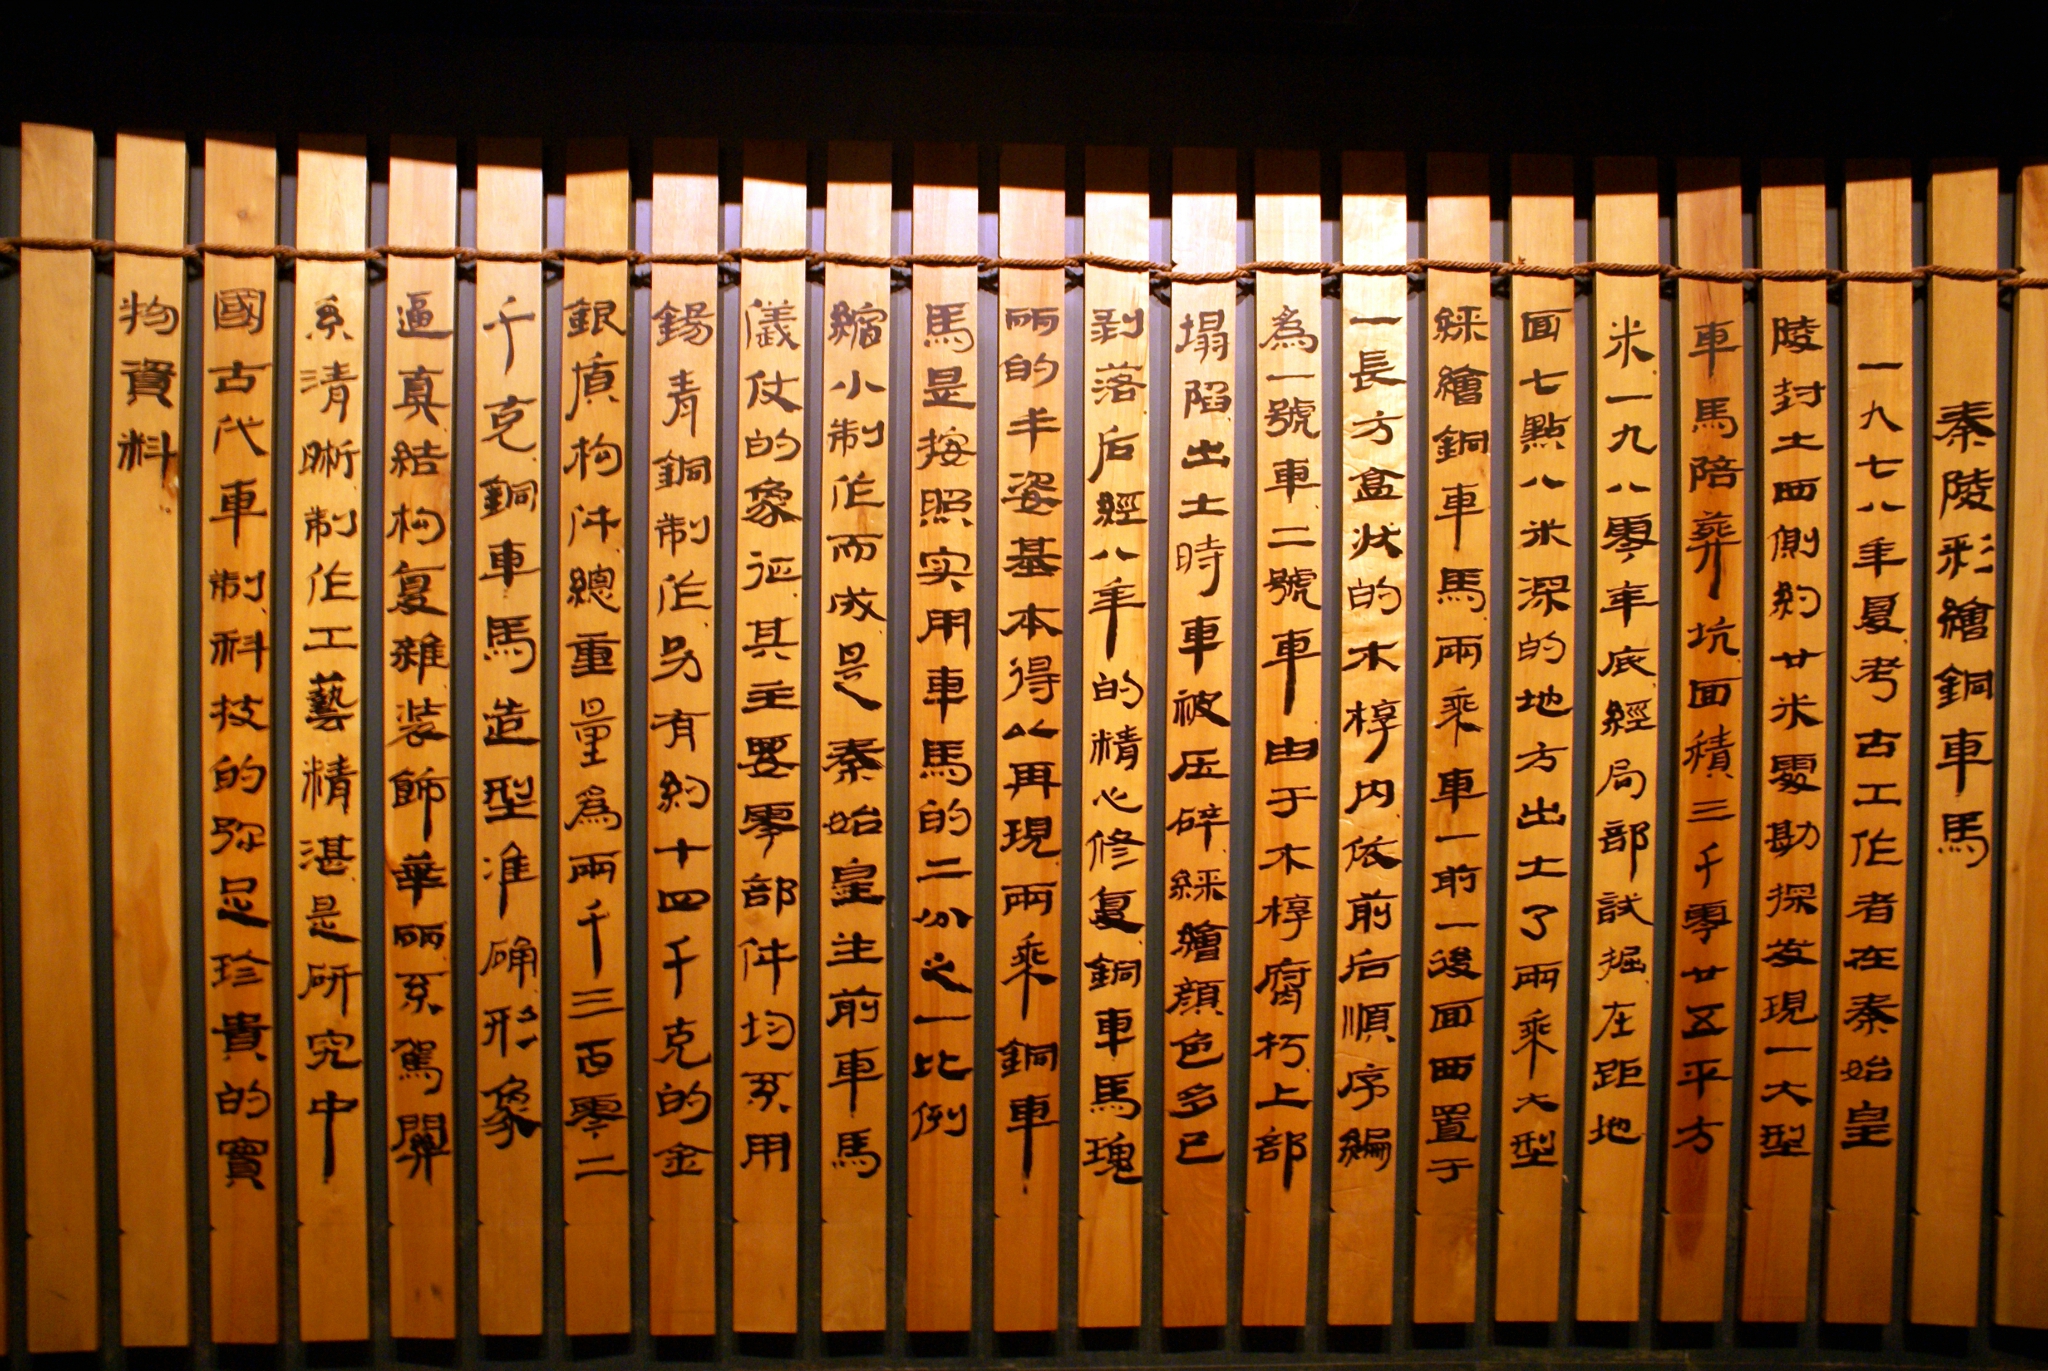 秦陵彩繪銅車馬
一九七八年夏考古工作者在秦始皇
陵封土西側約廿米處勘探发現一大型
車馬陪葬坑面積三千零廿五平方
米一九八零年底經局部試掘在距地
面七點八米深的地方出土了兩乘大型
綵繪銅車馬兩乘車一前一後面西置于
一長方盒狀的木椁内依前后順序編
為一號車二號車由于木椁腐朽上部
塌陷出土時車被压碎綵繪顔色多已
剥落后經八年的精心修复銅車馬瑰
丽的丰姿基本得以再現兩乘銅車
馬是按照实用車馬的二分之一比例
縮小制作而成是秦始皇主前車馬
儀仗的象征其主要零部件均系用
錫青銅制作另有約十四千克的金
銀質构件總重量為兩千三百零二
千克銅車馬造型准确形象
逼真结构复雜装飾華丽系駕關
系清晰制作工藝精湛是研究中
國古代車制科技的弥足珍貴的實
物資料